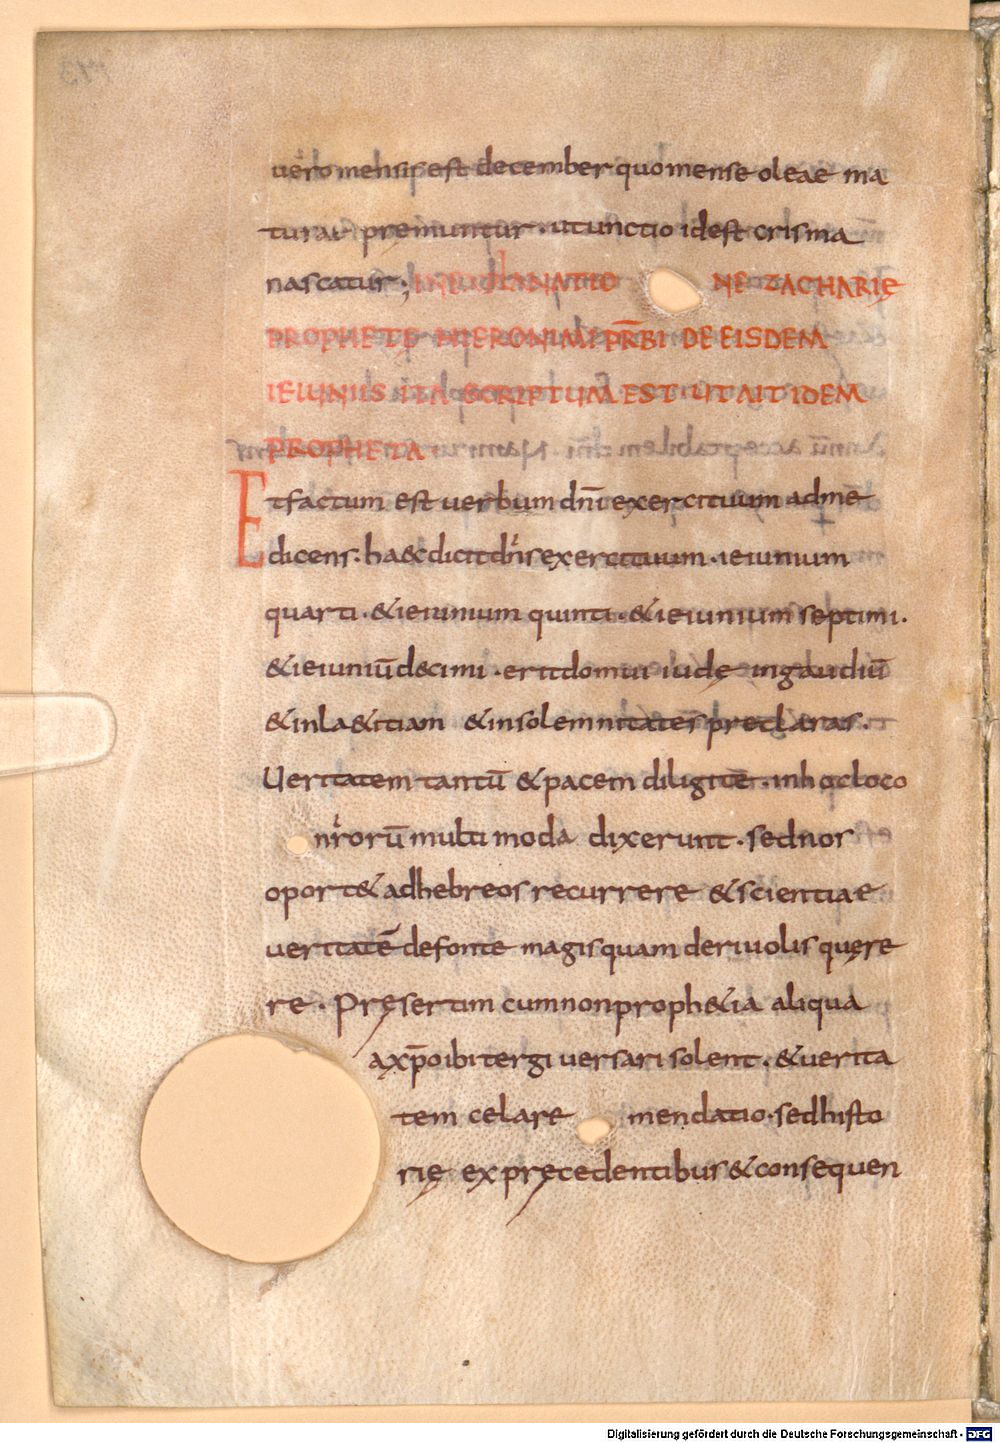 uero mensis est december quo mense oleae ma
turae premuntur · ut unctio id est crisma
nascatur ·, IN EXPLANATIO NE ZACHARIĘ
PROPHETE HIERONIMI PR̄BI DE EISDEM
IEIUNIIS ITA SCRIPTUM EST UT AIT IDEM
PROPHETA
Et factum est uerbum dn̄i exercituum ad me
dicens · haec dicit dn̄s exercituum · ieiunium
quarti · & ieiunium quinti · & ieiunium septimi ·
& ieiuniū decimi · erit domui iudę in gaudiū
& in la&itiam & in solemnitates preclaras ·
Ueritatem tantū & pacem diligite · in hoc loco
nr̄orū multi moda dixerunt · sed nos
oport& ad hebreos recurrere & scientiae
ueritatē de fonte magis quam de riuolis quęre
re · Pręsertim cum non proph&ia aliqua
a xp̄o ibi tergiuersari solent · & uerita
tem celare mendatio · sed histo
rię ex pręcedentibus & consequen
Digitalisierung gefördert durch die Deutsche Forschungsgemeinschaft - DFG